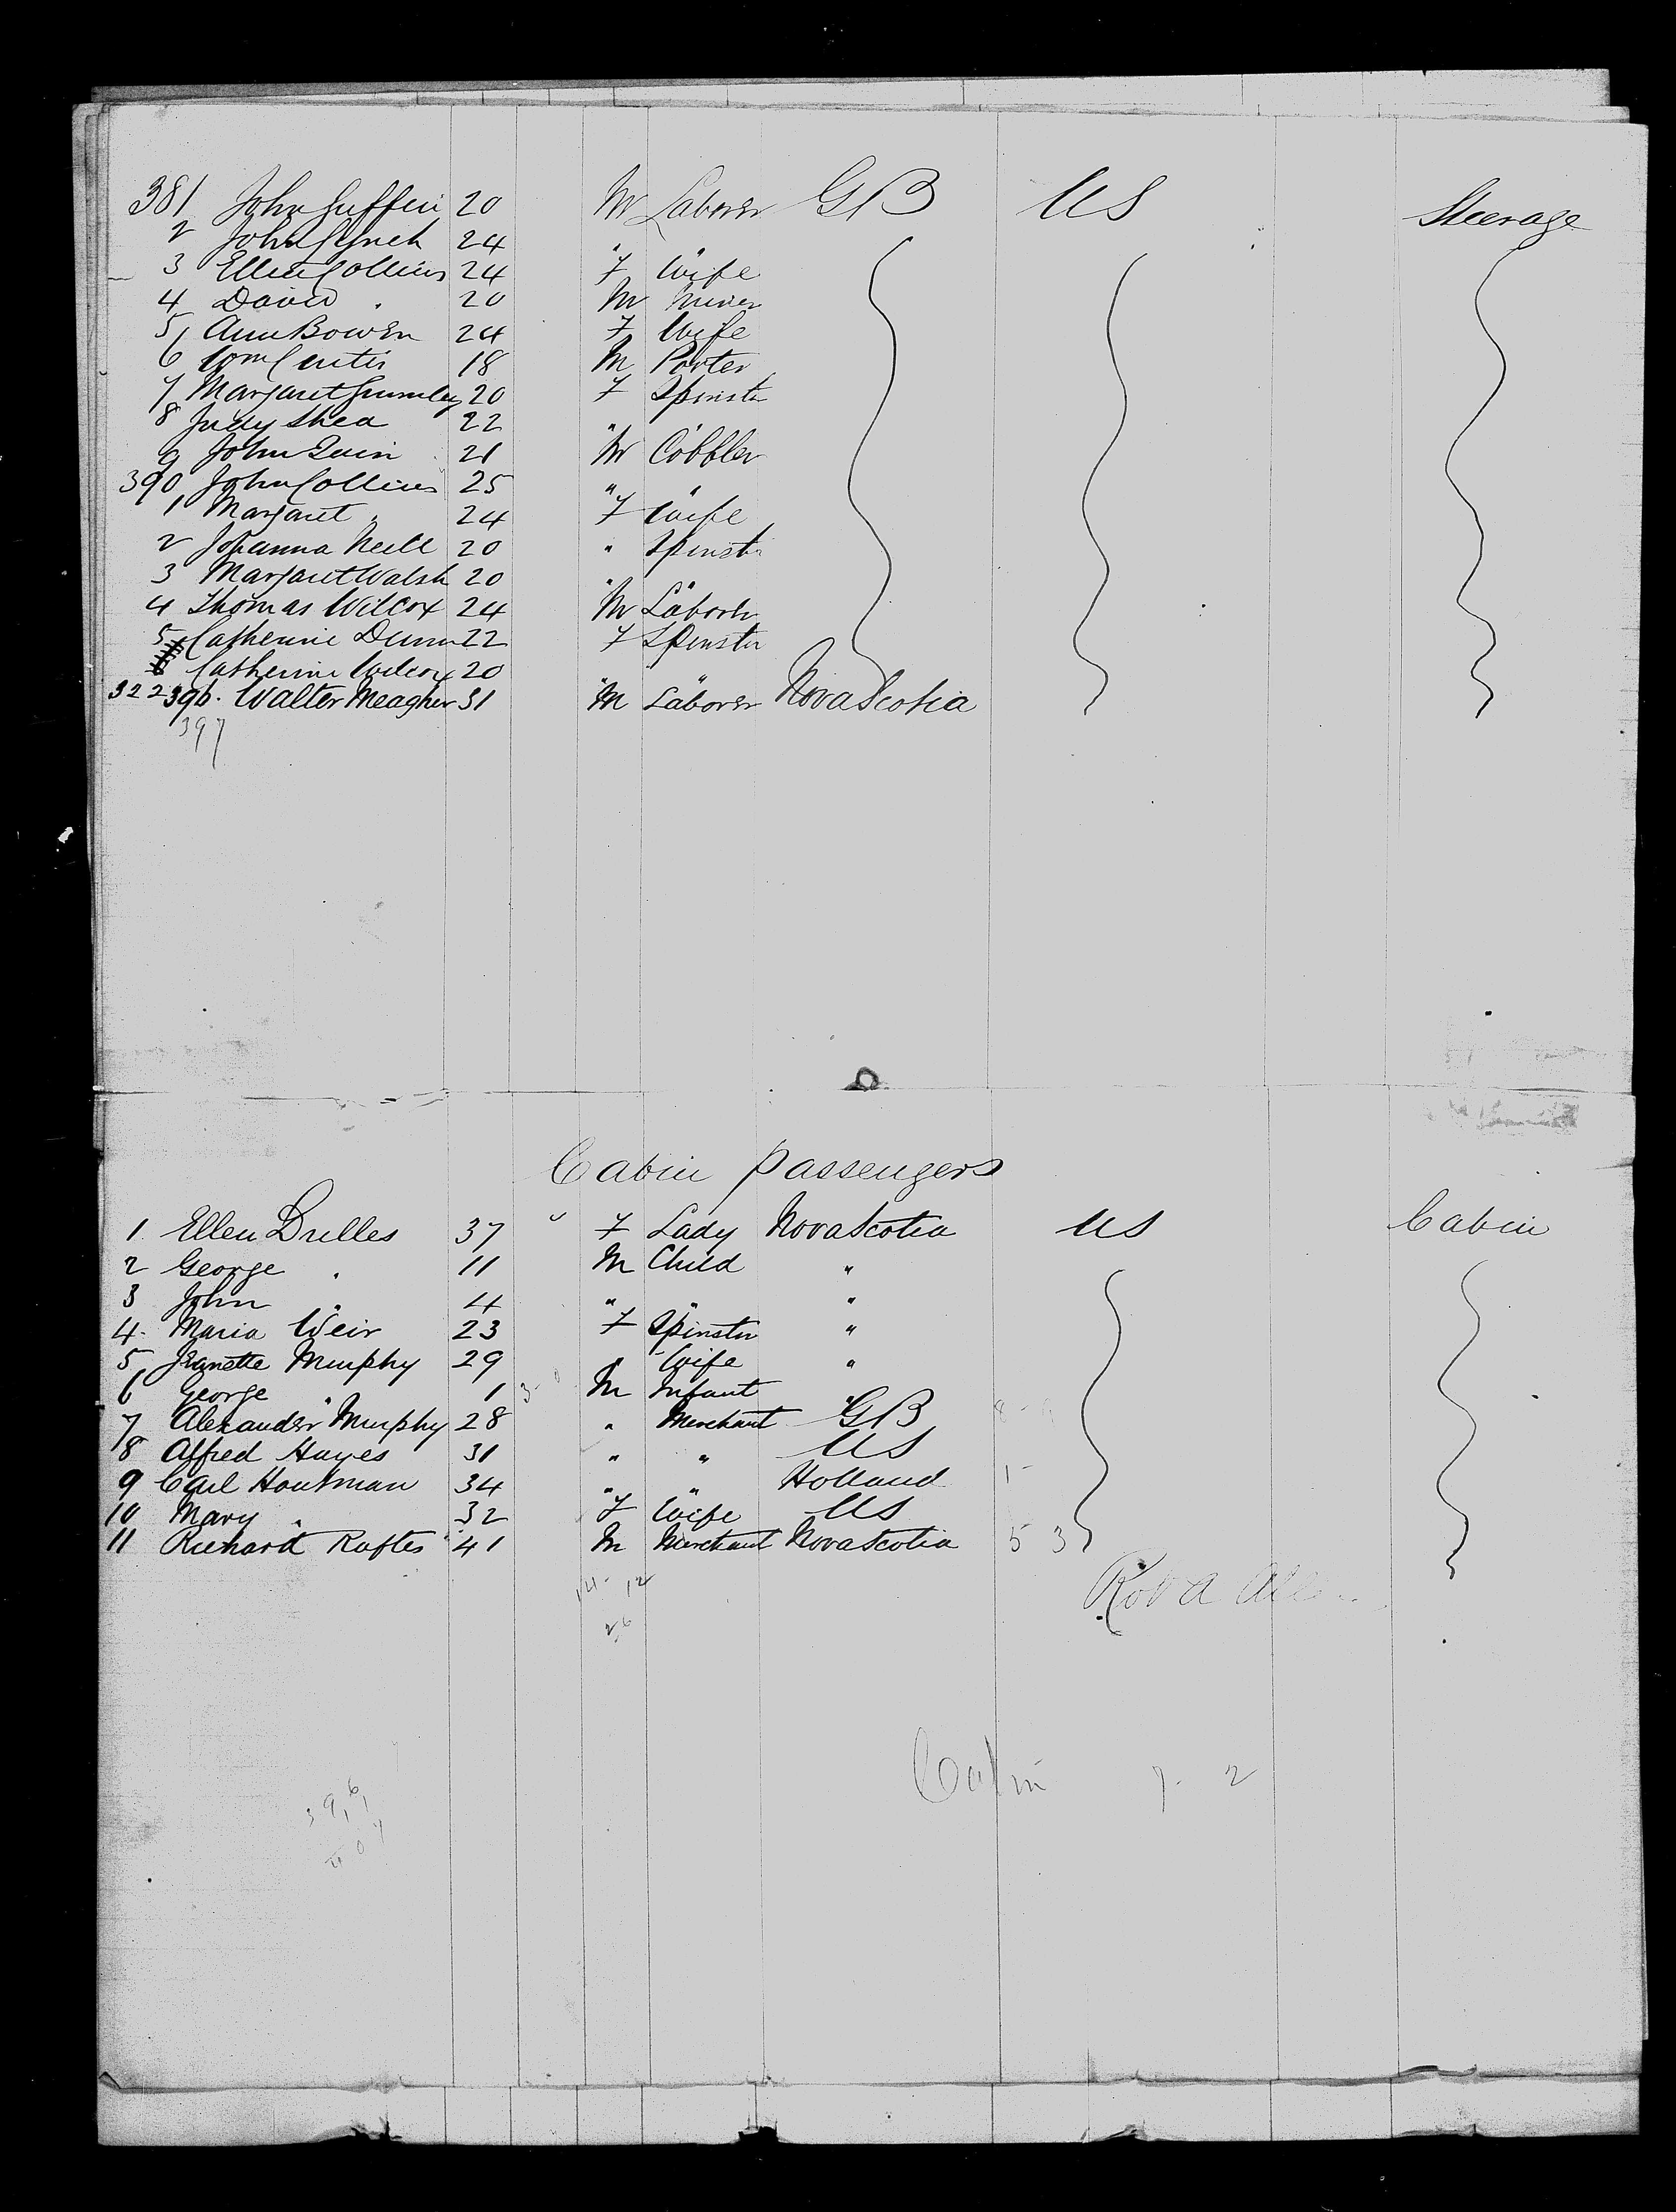 381 John Guffin 20 M Laborer GB US Steerage
2 John Lynch 24 " "
3 Ellen Collins 24 F Wife
4 David " 20 M Miner
5 Ann Bowen 24 F Wife
6 Wm Curtis 18 M Porter
7 Margaret Gumley 20 F Spinstr
8 Judy Shea 22 " "
9 John Quin 21 M Cobbler
390 John Collins 25 " "
1 Margaret " 24 F Wife
2 Johanna Neill 20 " Spinstr
3 Margaret Walsh 20 " "
4 Thomas Wilcox 24 M Laborer
5 Catherine Dunn 22 F Spinster
Catherine Wilcox 20 " "
322 396. Walter Meagher 31 M Laborer Nova Scotia
397
Cabin Passengers
1. Ellen Drilles 37 " F Lady Nova Scotia US Cabin
2 George " 11 M Child "
3 John " 4 " " "
4. Maria Weir 23 F Spinster "
5 Jeanette Murphy 29 " Wife "
6 George " 1 M Infant "
7 Alexander Murphy 28 " Merchant GB
8 Alfred Hayes 31 " " US
9 Carl Houtman 34 " " Holland 1-
10 Mary " 32 F Wife US
11 Richard Raftes 41 M Merchant Nova Scotia 5 3
12
26
Cabin 7- 2
396
407